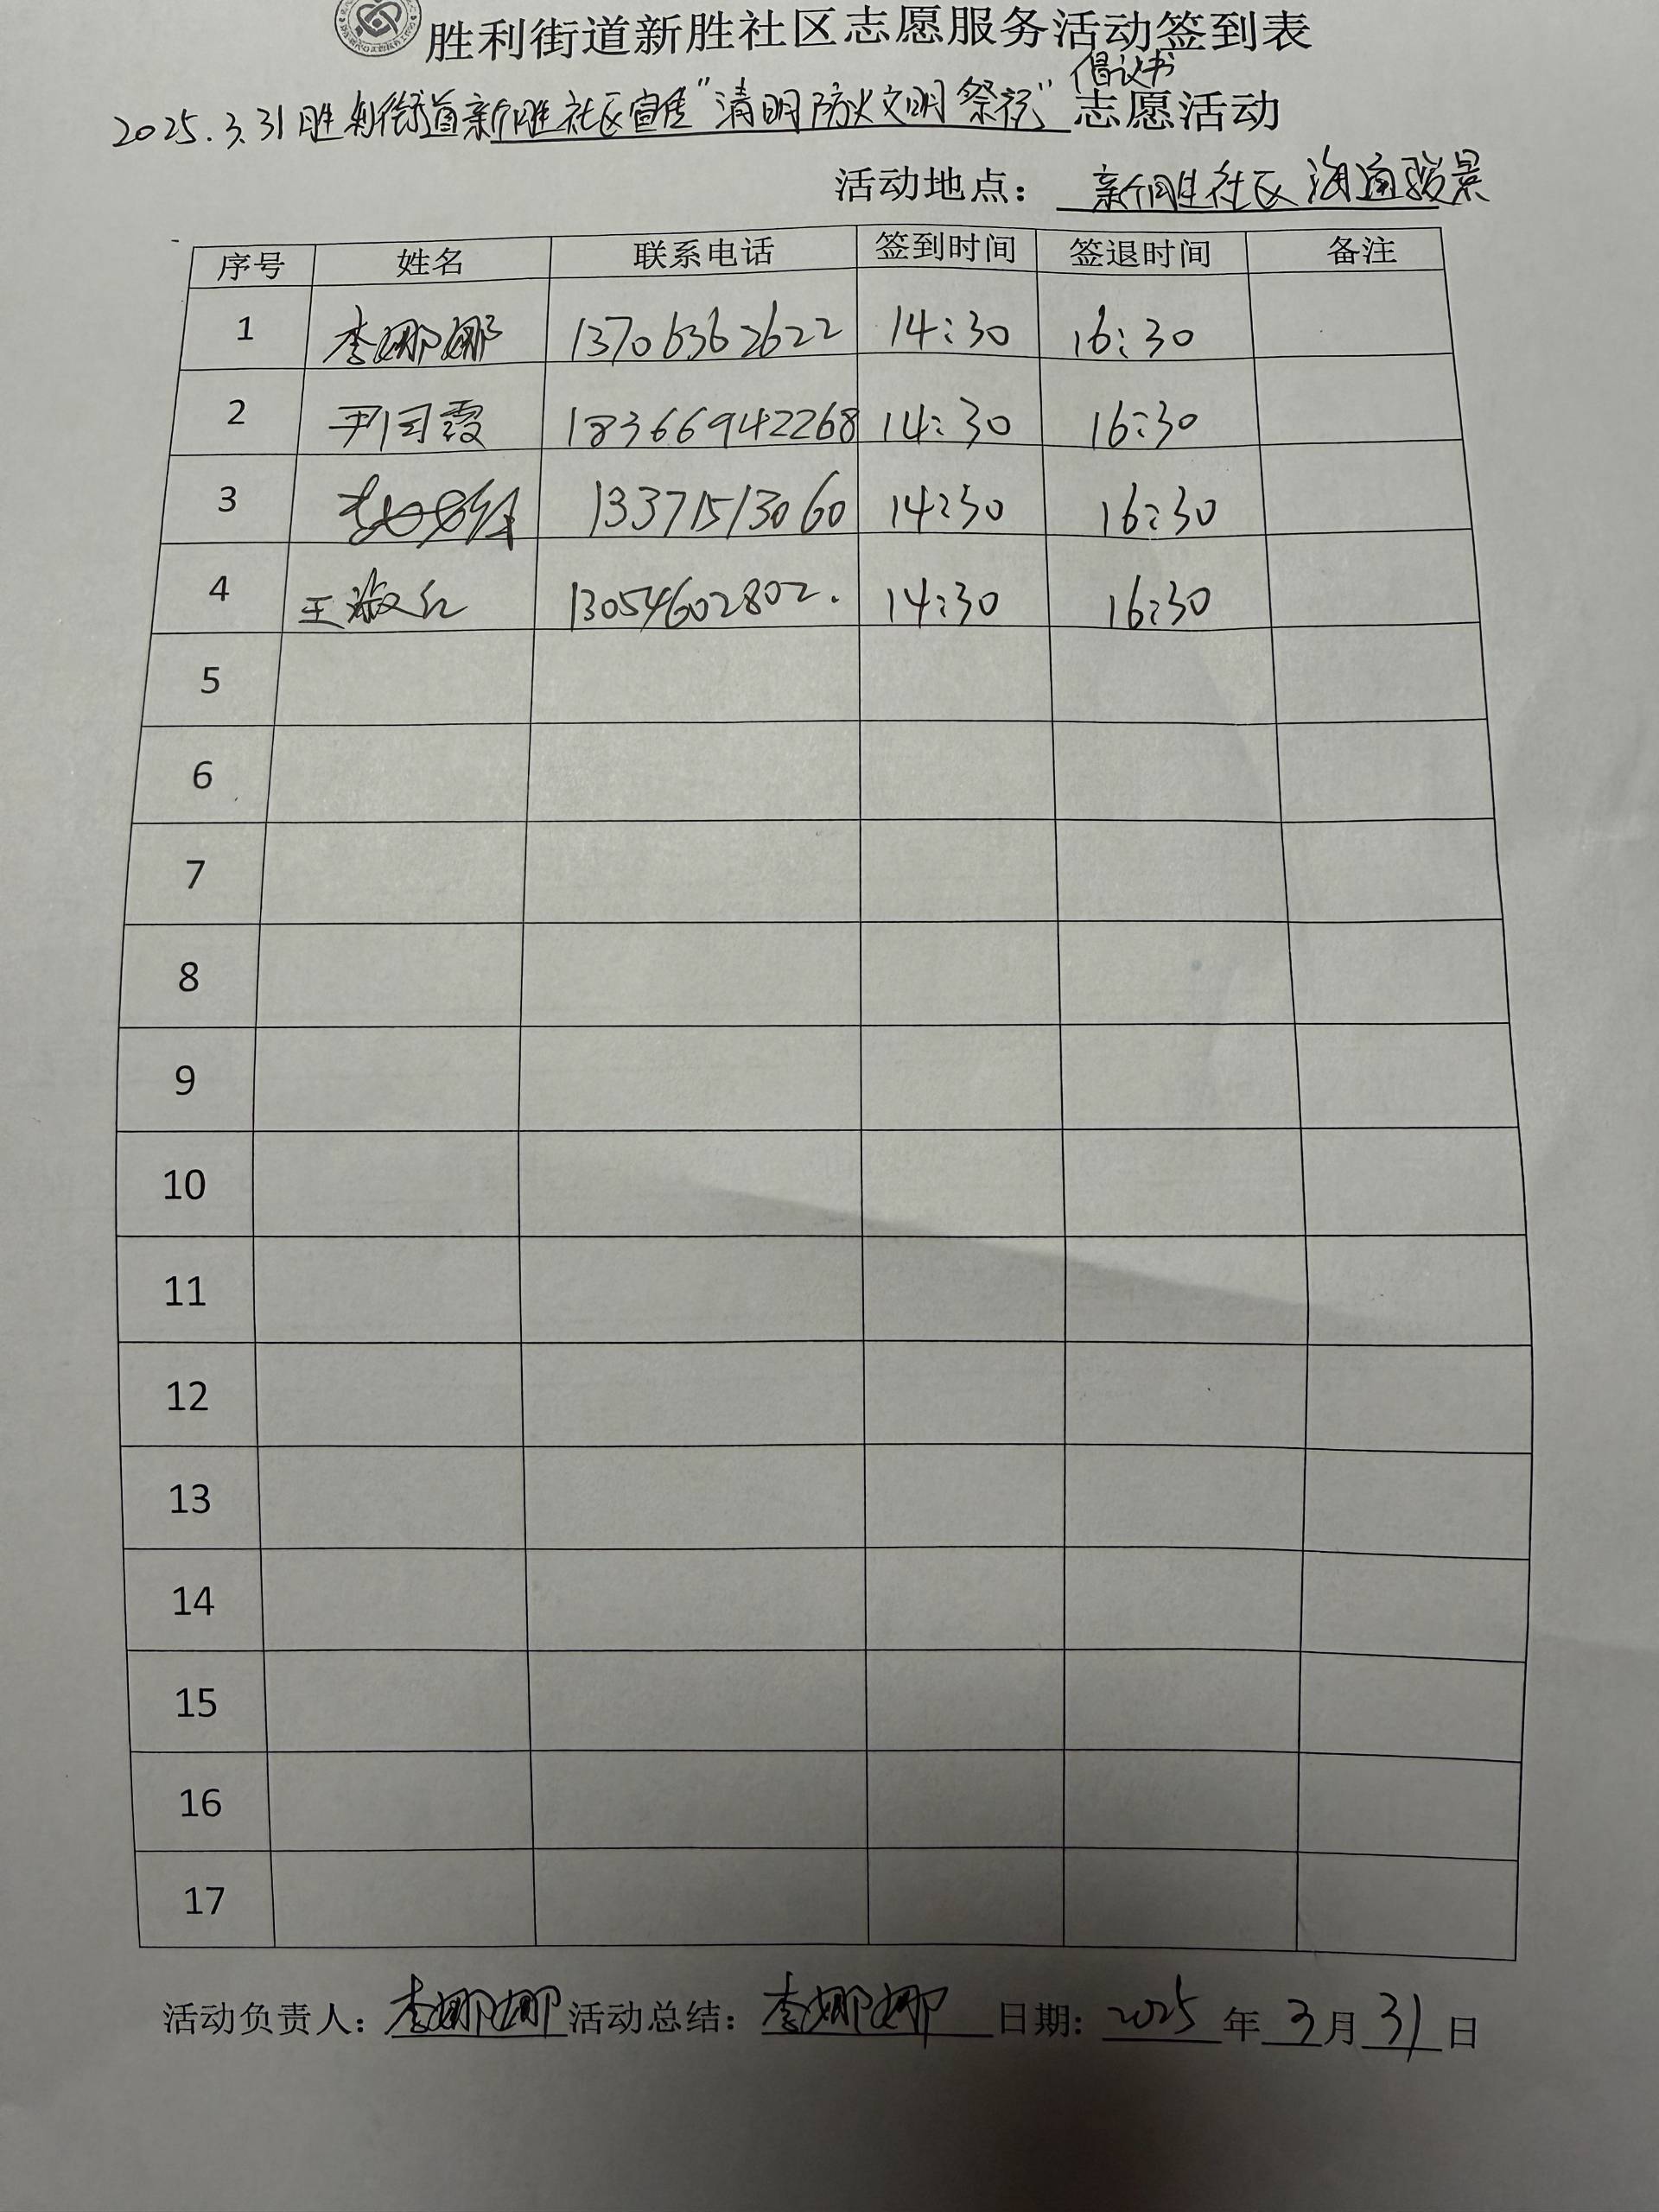 胜利街道新胜社区志愿服务活动签到表
倡议书
2025.3.31胜利街道新胜社区宣传"清明防火文明祭祀"志愿活动
活动地点：新胜社区海通骏景
序号 姓名 联系电话 签到时间 签退时间 备注
1 李娜娜 13706362622 14:30 16:30
2 尹同霞 18366942268 14:30 16:30
3 13371513060 14:30 16:30
4 王淑红 13054602802. 14:30 16:30
5
6
7
8
9
10
11
12
13
14
15
16
17
活动负责人：李娜娜 活动总结：李娜娜 日期：2025年3月31日